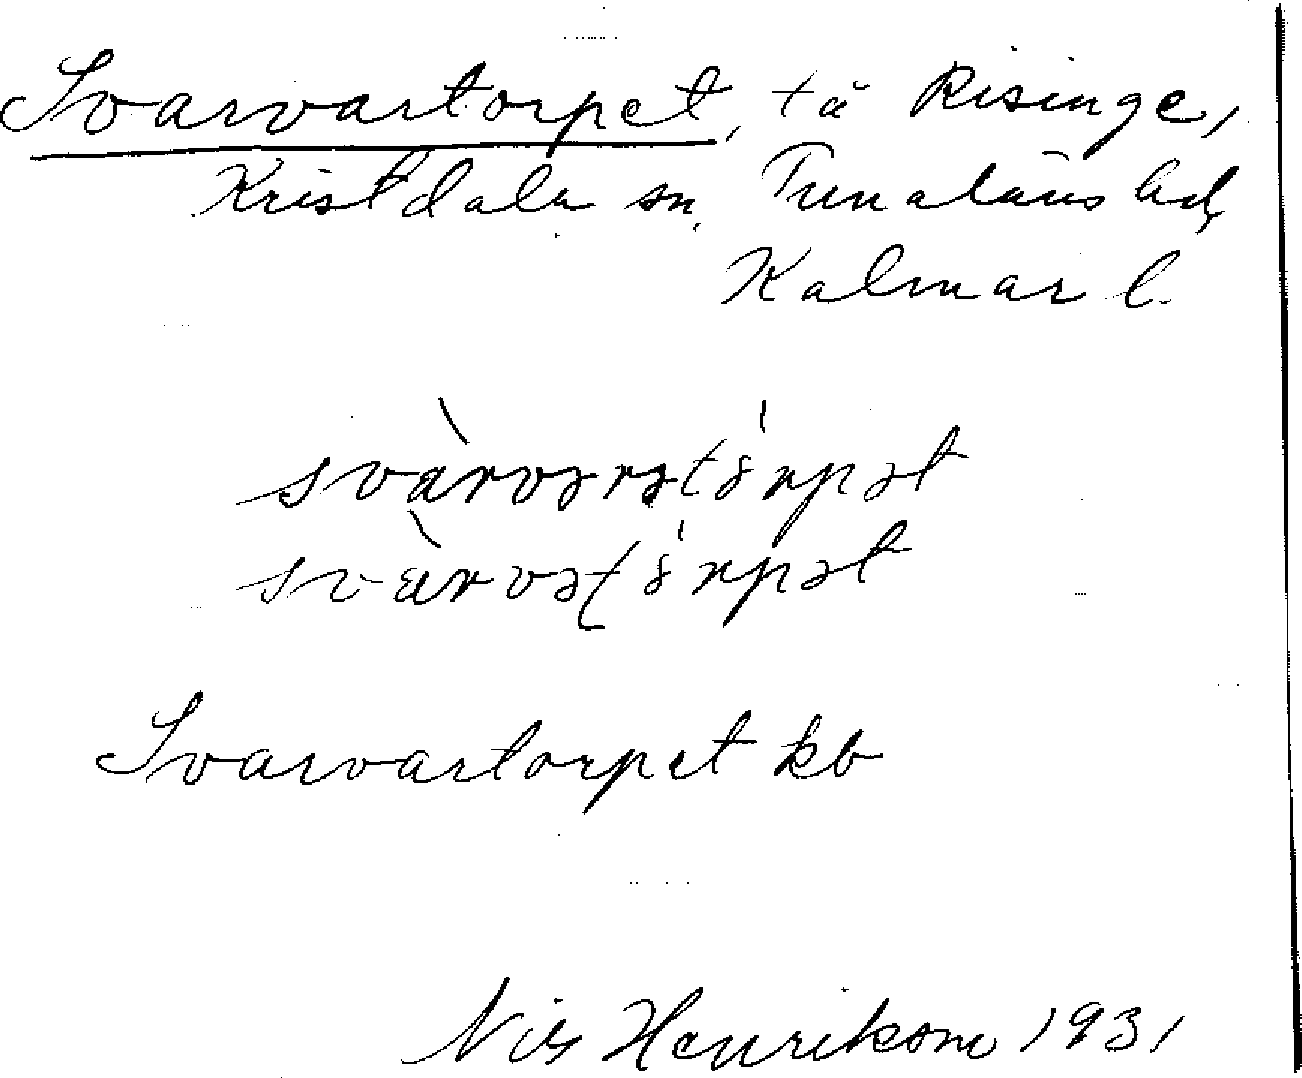 Svarvartorpet, tä Risinge,
Kristdala sn, Tunaläns hd,
Kalmar l.
svàrvərstórpət
svàrvətórpət
Svarvartorpet kb
Nils Henrikson 1931